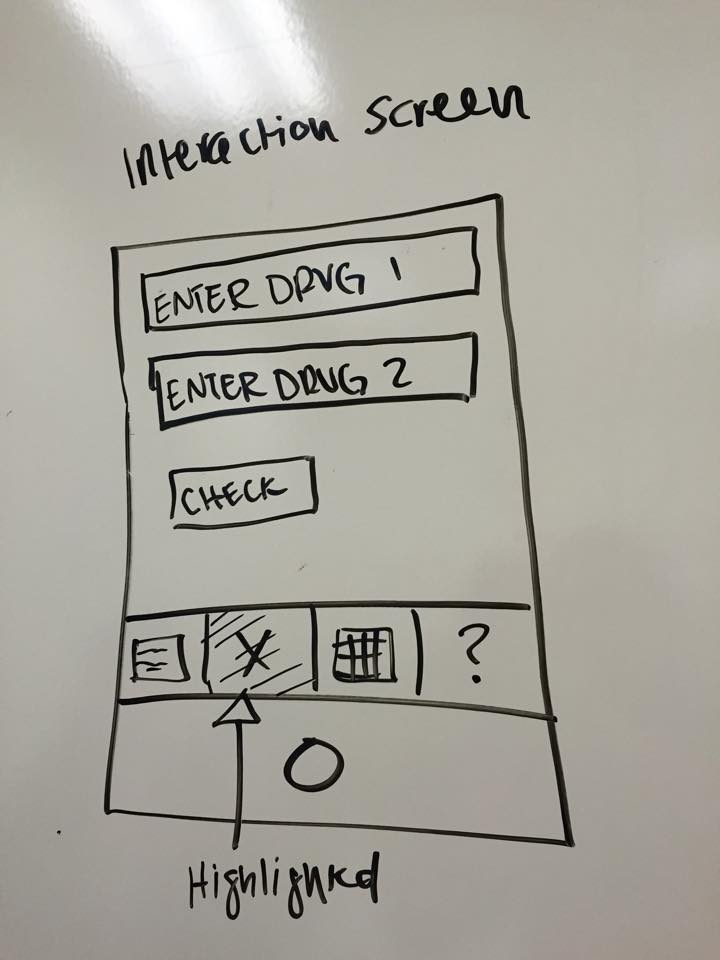 Interaction Screen
ENTER DRUG 1
ENTER DRUG 2
CHECK
X
?
Highlighted